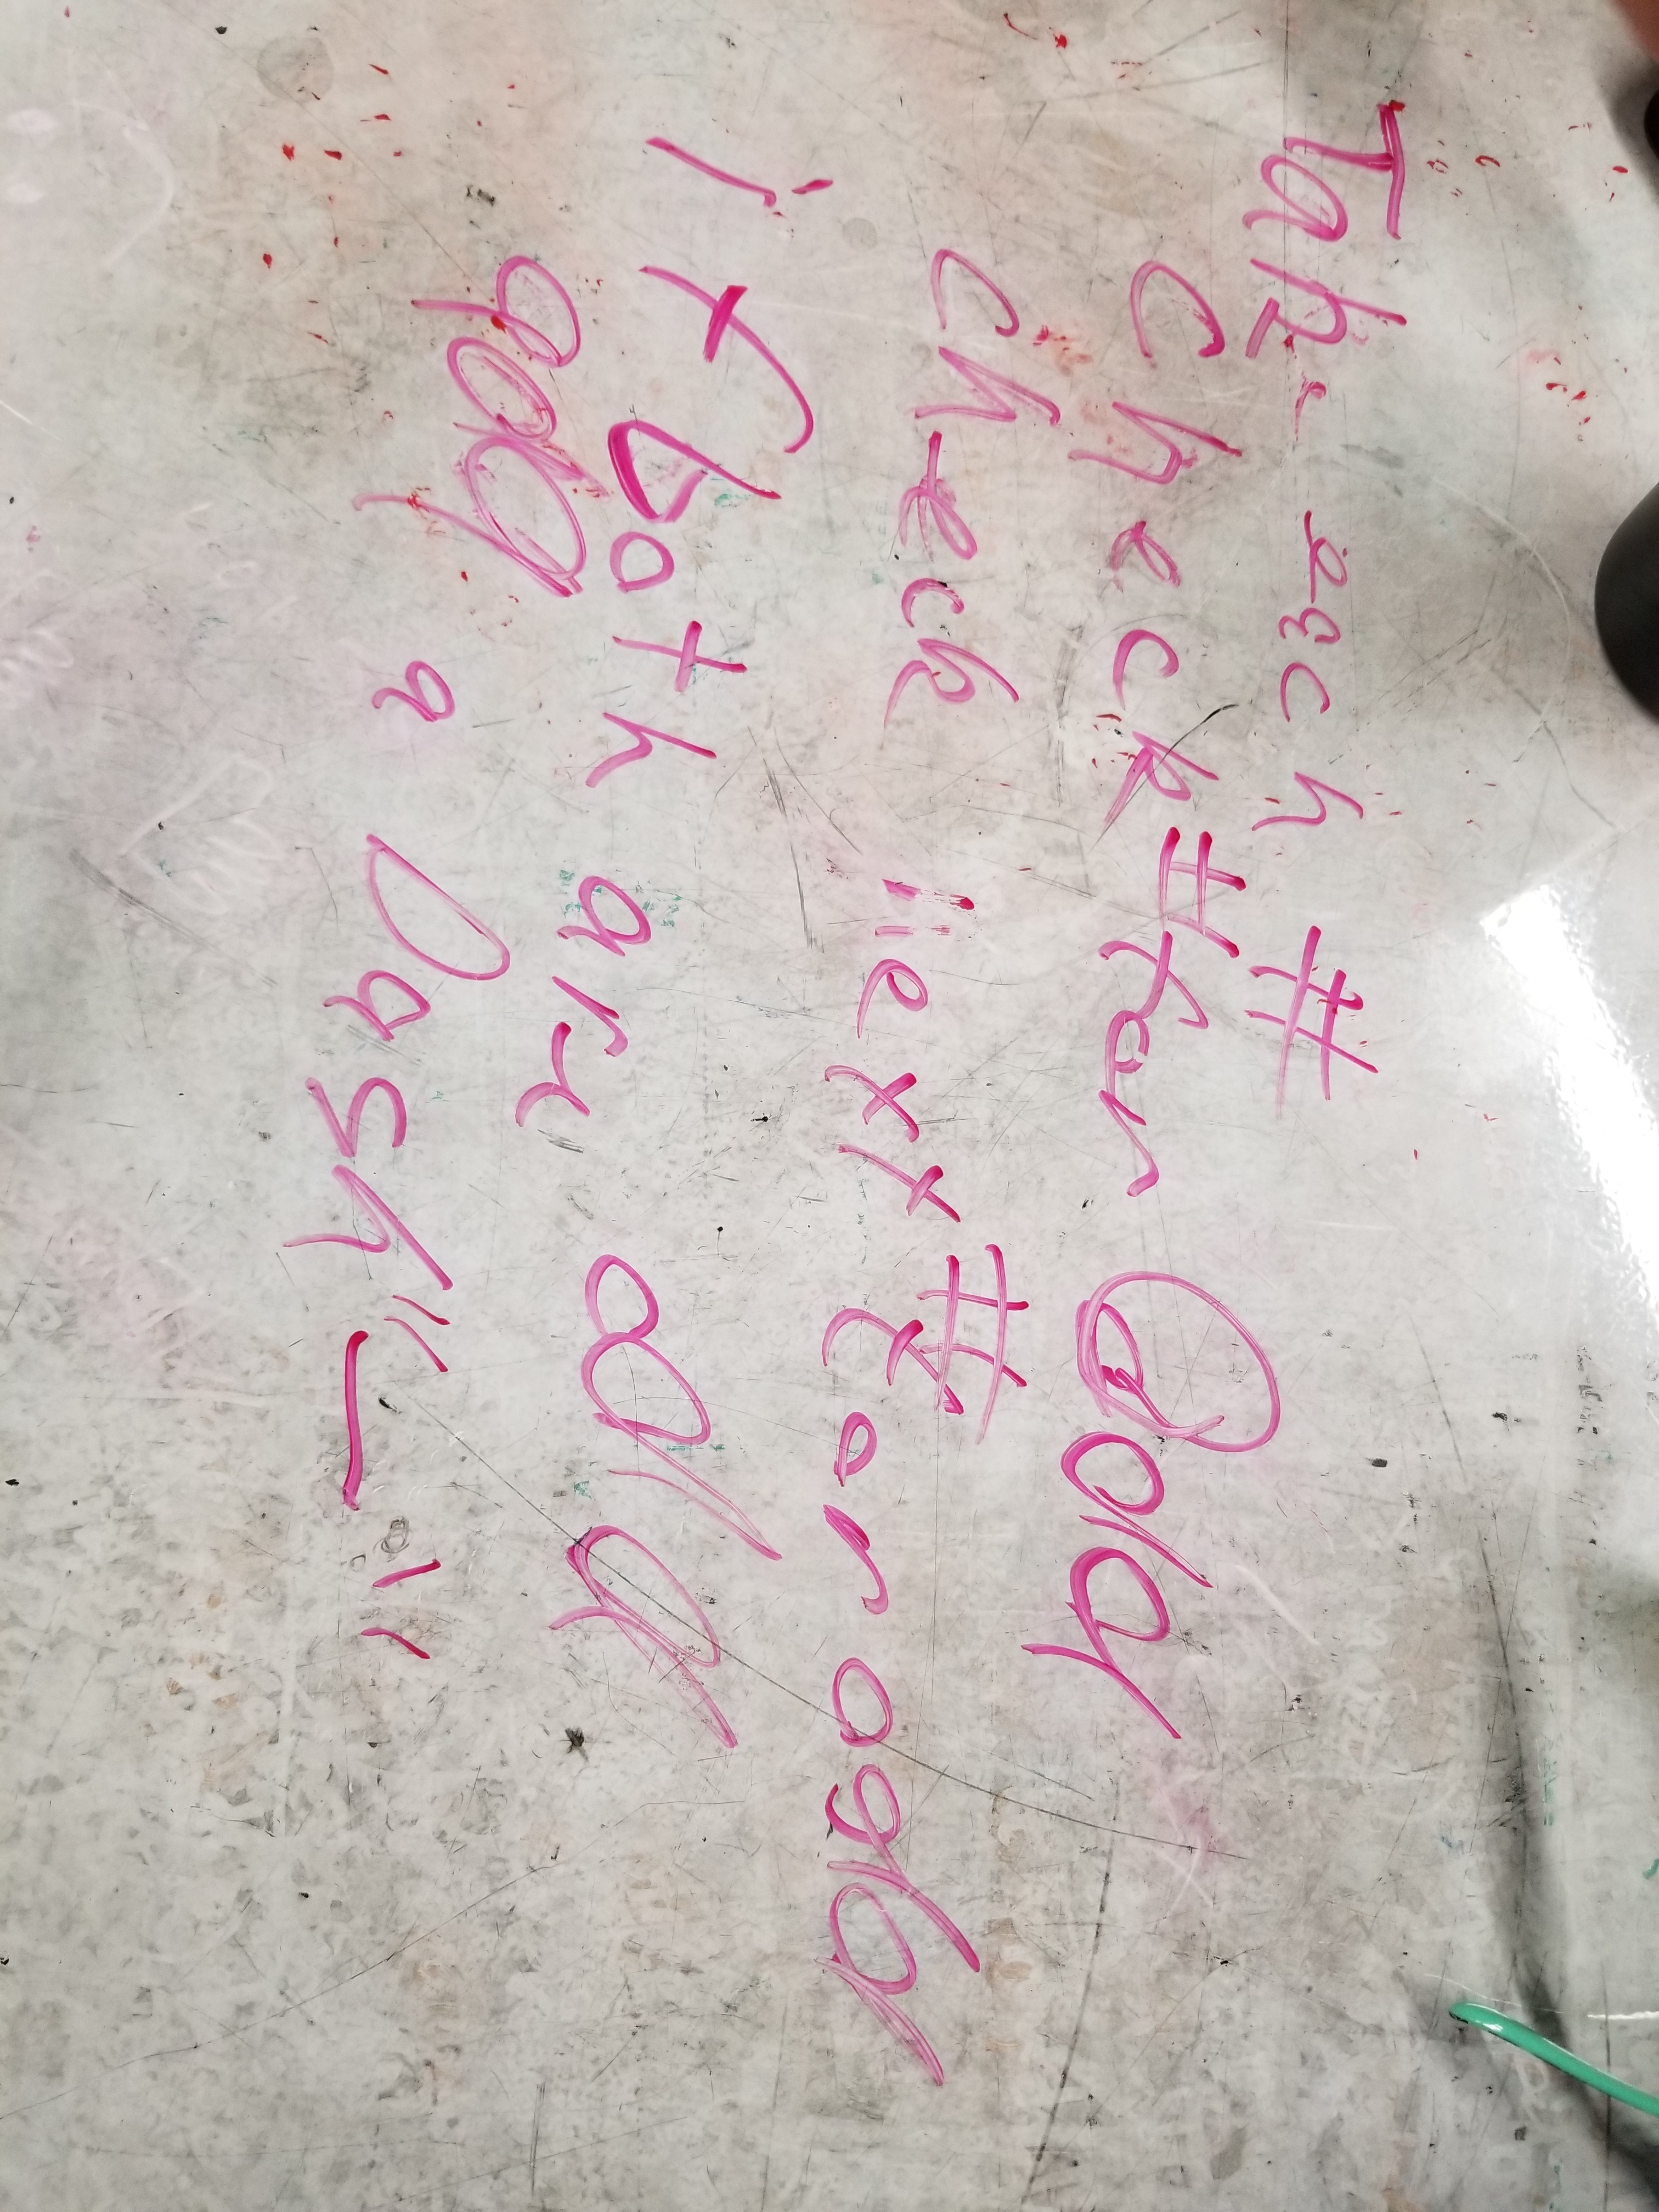 Take each #
Check # for Odd
check next # for odd
if both are odd
add a Dash "—"